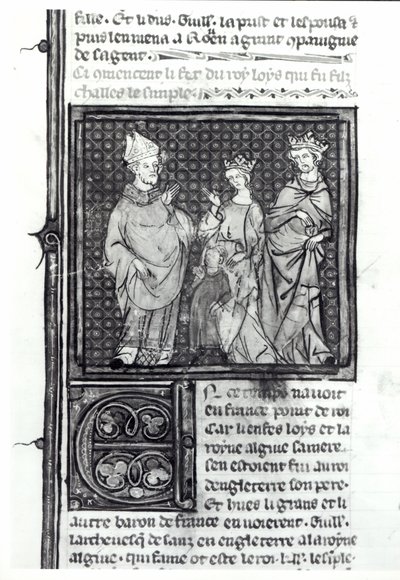 fille. Et li dus. Guill'. la prist et lespousa &
puis len mena a Roen a grant conpaignie
de sa gent.
Ci comencent li fet du roy loys qui fu filz
challes le simple.
En ce temps navoit
en france point de roi
Car li enfes loys et la
royne algive sa mere
sen estoient fui au roi
dengleterre son pere.
Et hues li grans et li
autre baron de france envoierent. Guill'.
larchevesque de sanz en engleterre a la royne
algive. qui fame ot este le roi. le simple.